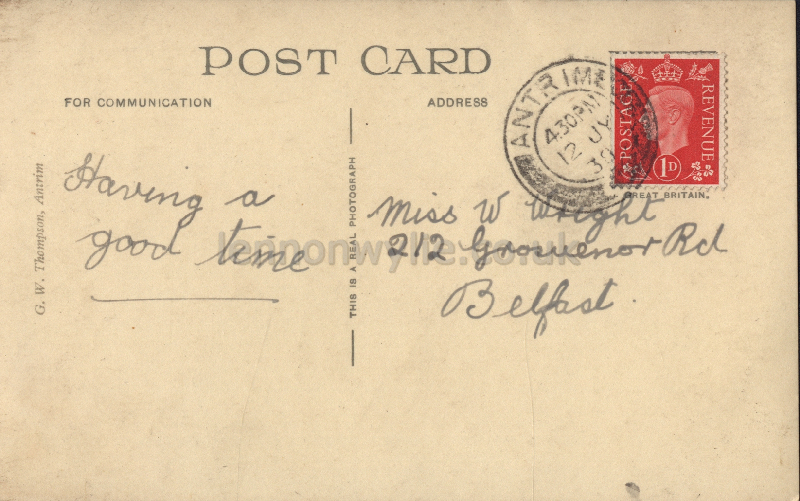 POST CARD
FOR COMMUNICATION
ADDRESS
ANTRIM
4.30PM
12 JY
39
POSTAGE
REVENUE
1D
GREAT BRITAIN.
G. W. Thompson, Antrim
THIS IS A REAL PHOTOGRAPH
Having a
good time
Miss W Wright
212 Grosvenor Rd
Belfast.
lennonwylie.co.uk